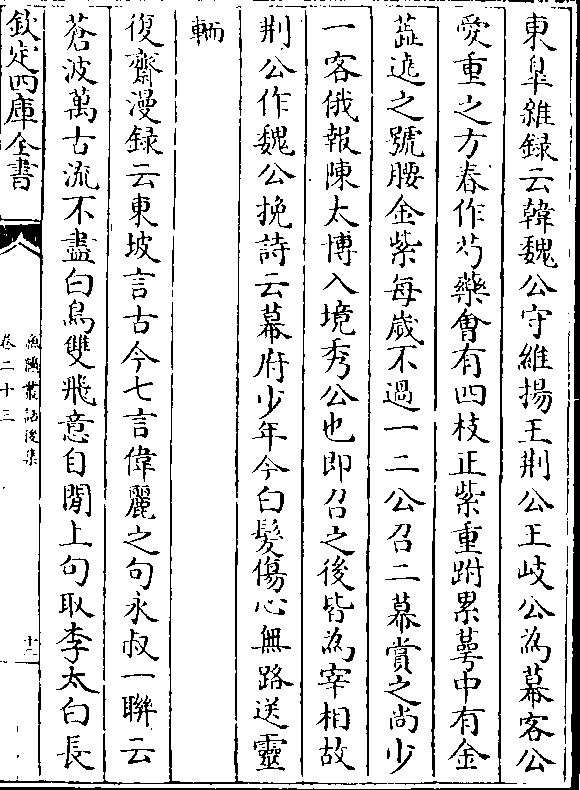 東臯雜録云韓魏公守維揚王荆公王岐公為幕客公
愛重之方春作芍藥會有四枝正紫重跗累萼中有金
蘂遶之號腰金紫每嵗不過一二公召二幕賞之尚少
一客俄報陳太博入境秀公也即召之後皆為宰相故
荆公作魏公挽詩云幕府少年今白髪傷心無路送靈
輀
復齋漫録云東坡言古今七言偉麗之句永叔一聯云
蒼波萬古流不盡白鳥雙飛意自閒上句取李太白長
欽定四庫全書
漁隱叢話後集
卷二十三
十二